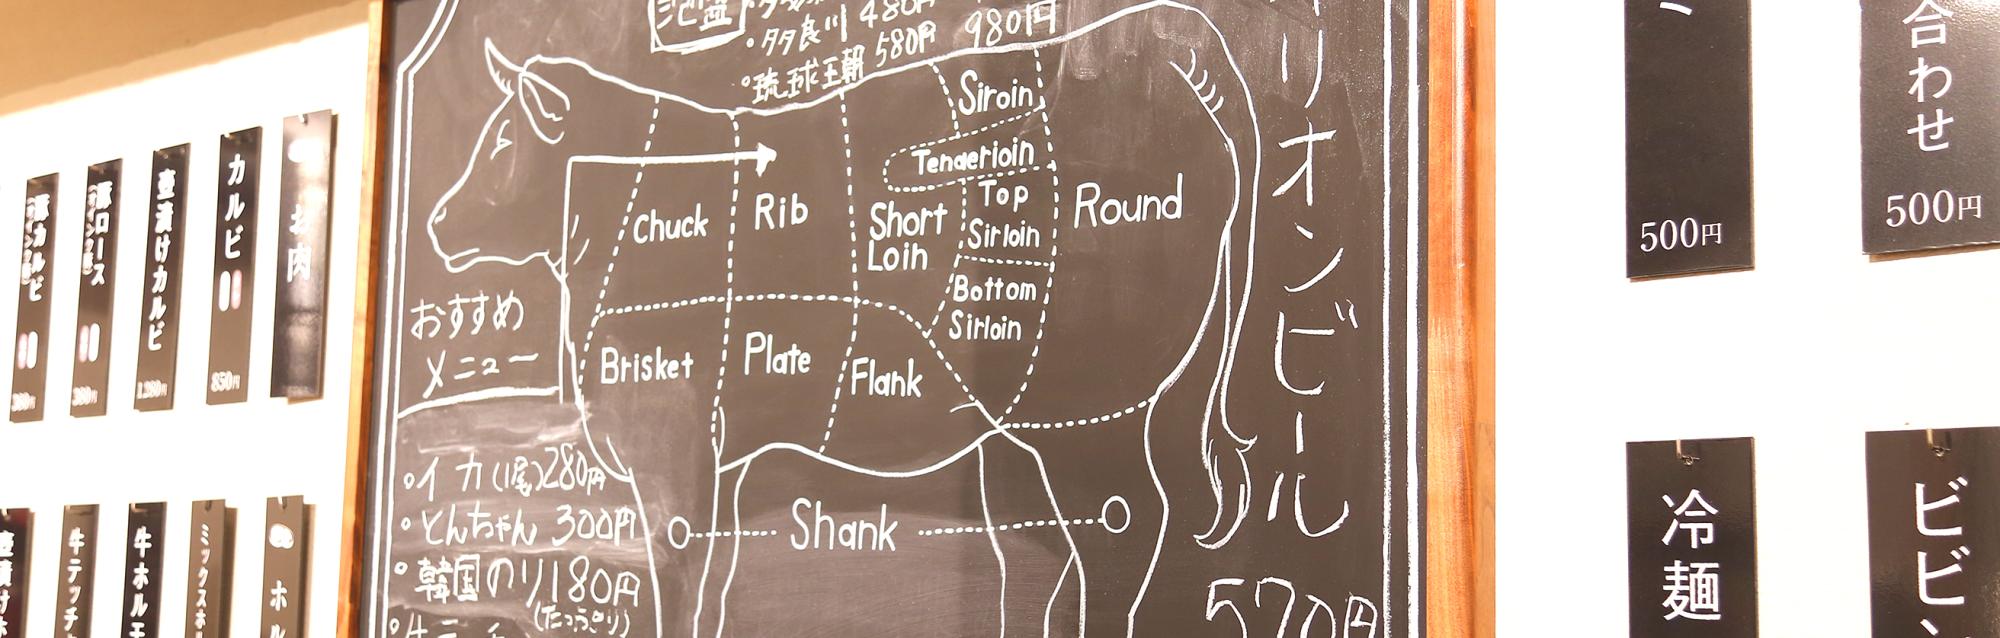 お肉
カルビ
850円
壺漬けカルビ
1,280円
豚ロース
380円
豚カルビ
380円
ホル
ミックスホル
牛ホルモ
牛テッチ
壺漬けホ
480円 980円
・多良川
・琉球王朝 580円
Siroin
Tenderioin
Top
Sirloin
Bottom
Sirloin
Chuck
Rib
Short
Loin
Round
Brisket
Plate
Flank
Shank
おすすめ
メニュー
・イカ(1尾)280円
・とんちゃん 300円
・韓国のり180円
(たっぷり)
リオンビール
570円
500円
合わせ
500円
冷麺
ビビ